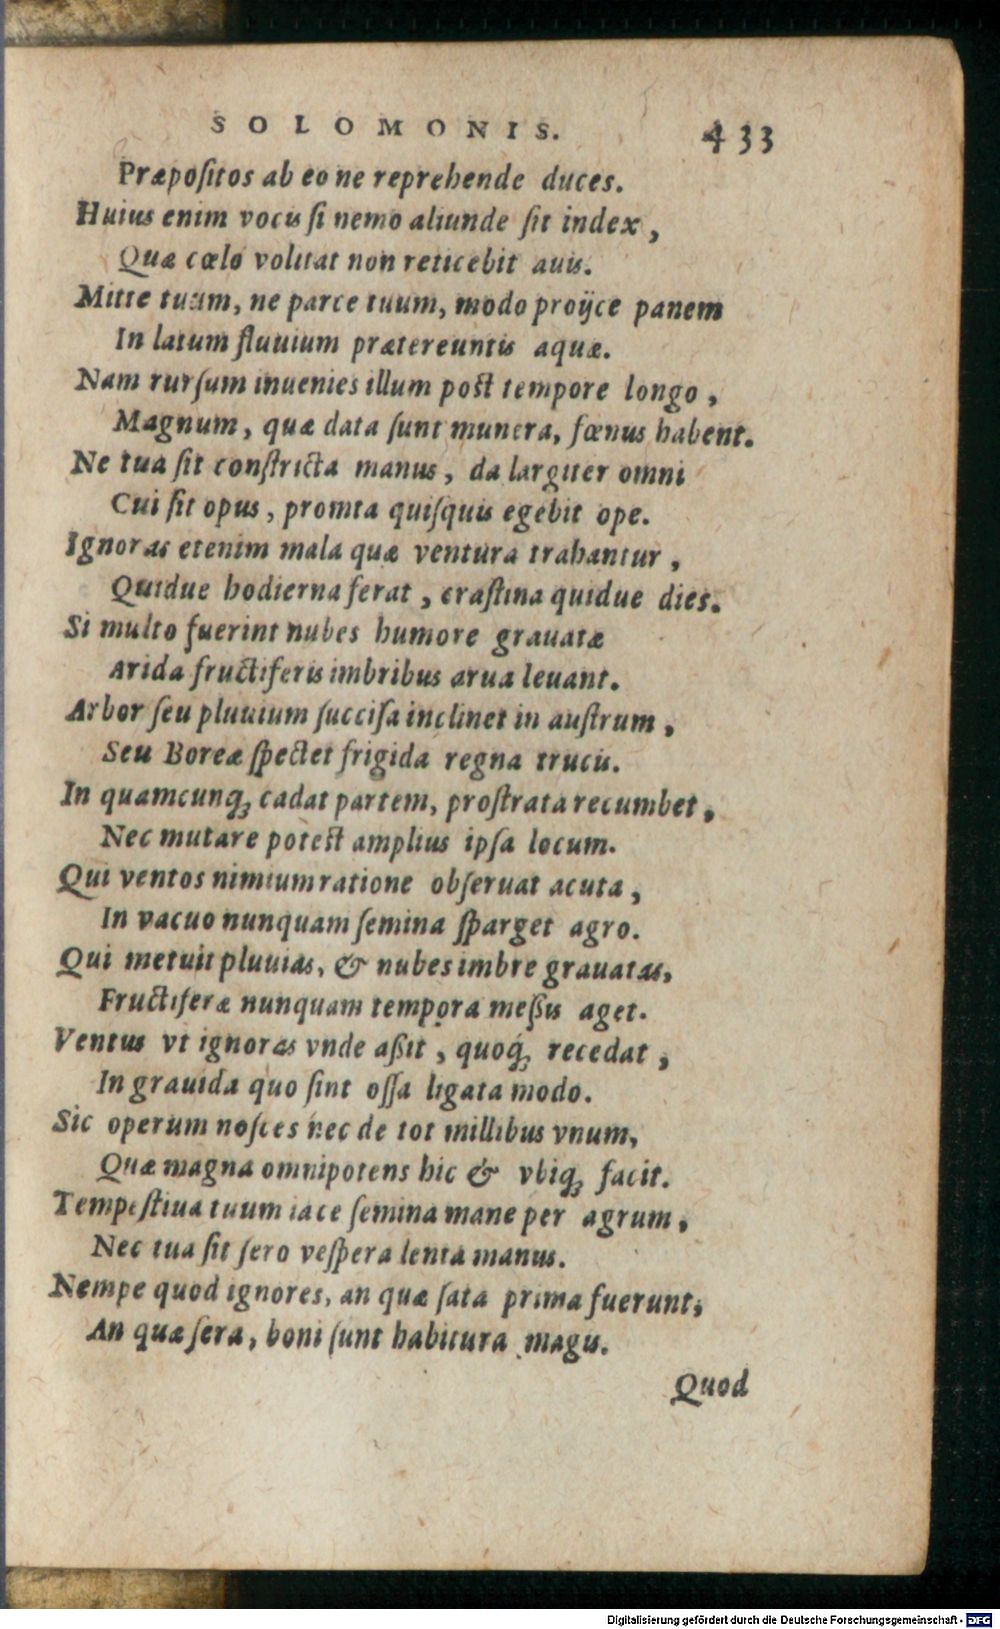 SOLOMONIS. 433
Præpoſitos ab eo ne reprehende duces.
Huius enim vocis ſi nemo aliunde ſit index,
Quæ cœlo volitat non reticebit auis.
Mitte tuum, ne parce tuum, modo proijce panem
In latum fluuium prætereuntis aquæ.
Nam rurſum inuenies illum poſt tempore longo,
Magnum, quæ data ſunt munera, fœnus habent.
Ne tua ſit conſtricta manus, da largiter omni
Cui ſit opus, promta quiſquis egebit ope.
Ignoras etenim mala quæ ventura trahantur,
Quidue hodierna ferat, craſtina quidue dies.
Si multo fuerint nubes humore grauatæ
Arida fructiferis imbribus arua leuant.
Arbor ſeu pluuium ſucciſa inclinet in auſtrum,
Seu Boreæ ſpectet frigida regna trucis.
In quamcunq; cadat partem, proſtrata recumbet,
Nec mutare poteſt amplius ipſa locum.
Qui ventos nimium ratione obſeruat acuta,
In vacuo nunquam ſemina ſparget agro.
Qui metuit pluuias, & nubes imbre grauatas,
Fructiferæ nunquam tempora meßis aget.
Ventus vt ignoras vnde aßit, quoq́; recedat,
In grauida quo ſint oſſa ligata modo.
Sic operum noſces nec de tot millibus vnum,
Quæ magna omnipotens hic & vbiq; facit.
Tempeſtiua tuum iace ſemina mane per agrum,
Nec tua ſit ſero veſpera lenta manus.
Nempe quod ignores, an quæ ſata prima fuerunt,
An quæ ſera, boni ſunt habitura magis.
Quod
Digitalisierung gefördert durch die Deutsche Forschungsgemeinschaft - DFG